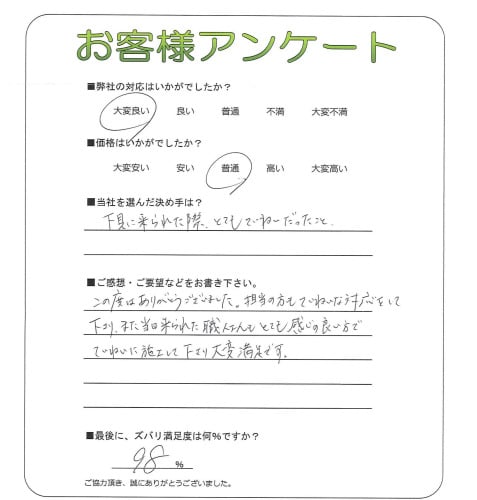 お客様アンケート
■弊社の対応はいかがでしたか？
大変良い　良い　普通　不満　大変不満
■価格はいかがでしたか？
大変安い　安い　普通　高い　大変高い
■当社を選んだ決め手は？
下見に来られた際、とてもていねいだったこと。
■ご感想・ご要望などをお書き下さい。
この度はありがとうございました。担当の方もていねいな対応をして
下さり、また当日来られた職人さんもとても感じの良い方で
ていねいに施工して下さり大変満足です。
■最後に、ズバリ満足度は何%ですか？
98 %
ご協力頂き、誠にありがとうございました。